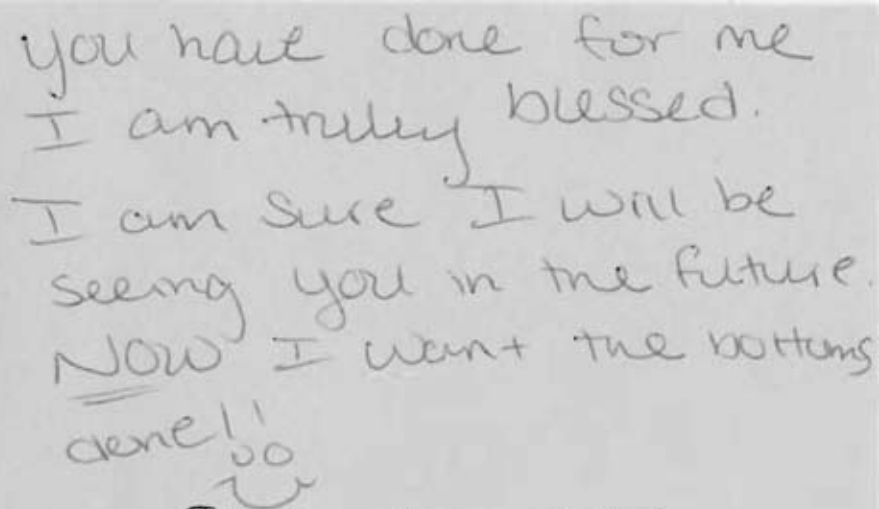 you have done for me
I am truley blessed.
I am sure I will be
seeing you in the future.
NOW I want the bottoms
done!!